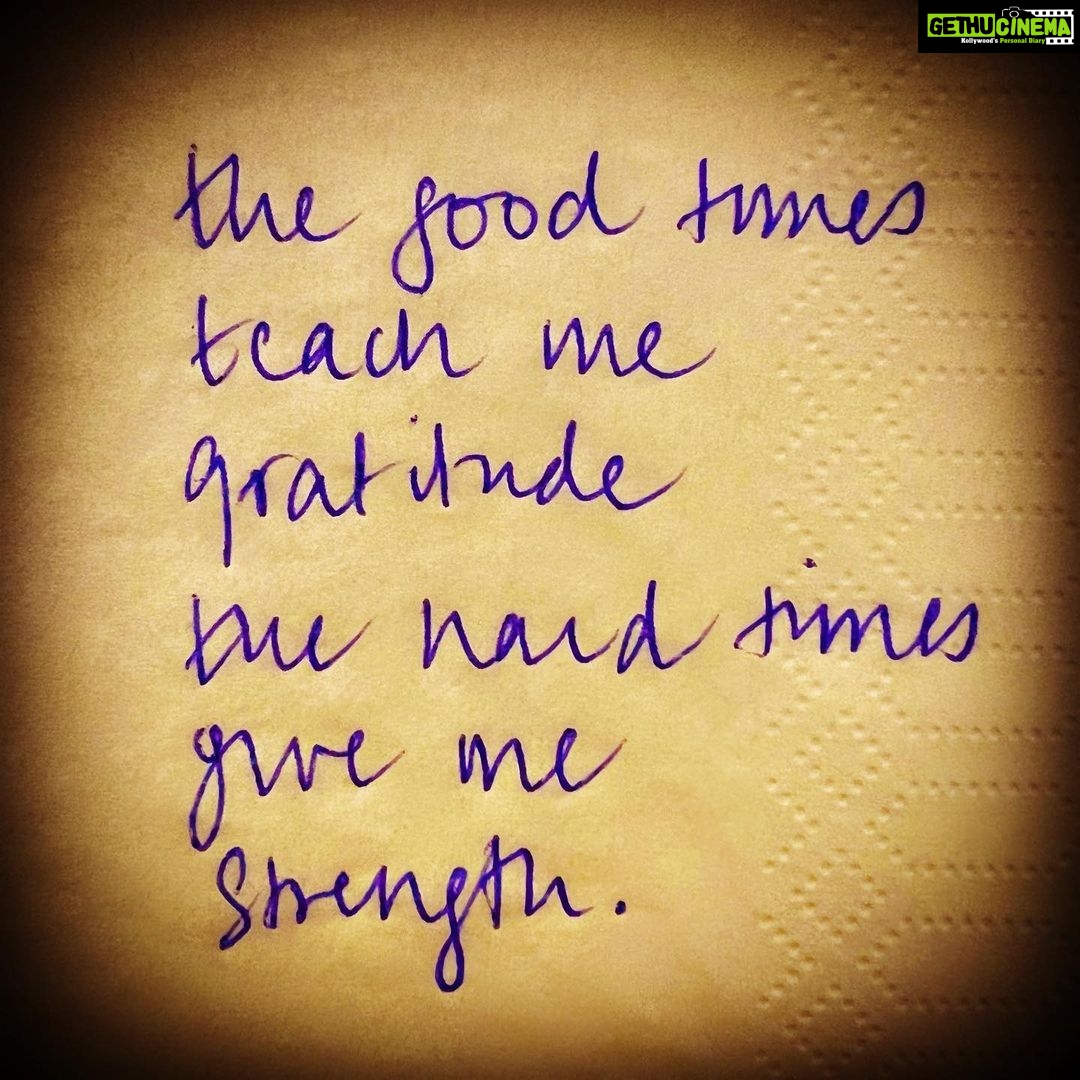 GETHUCINEMA
Kollywood's Personal Diary
the good times
teach me
gratitude
the hard times
give me
strength.